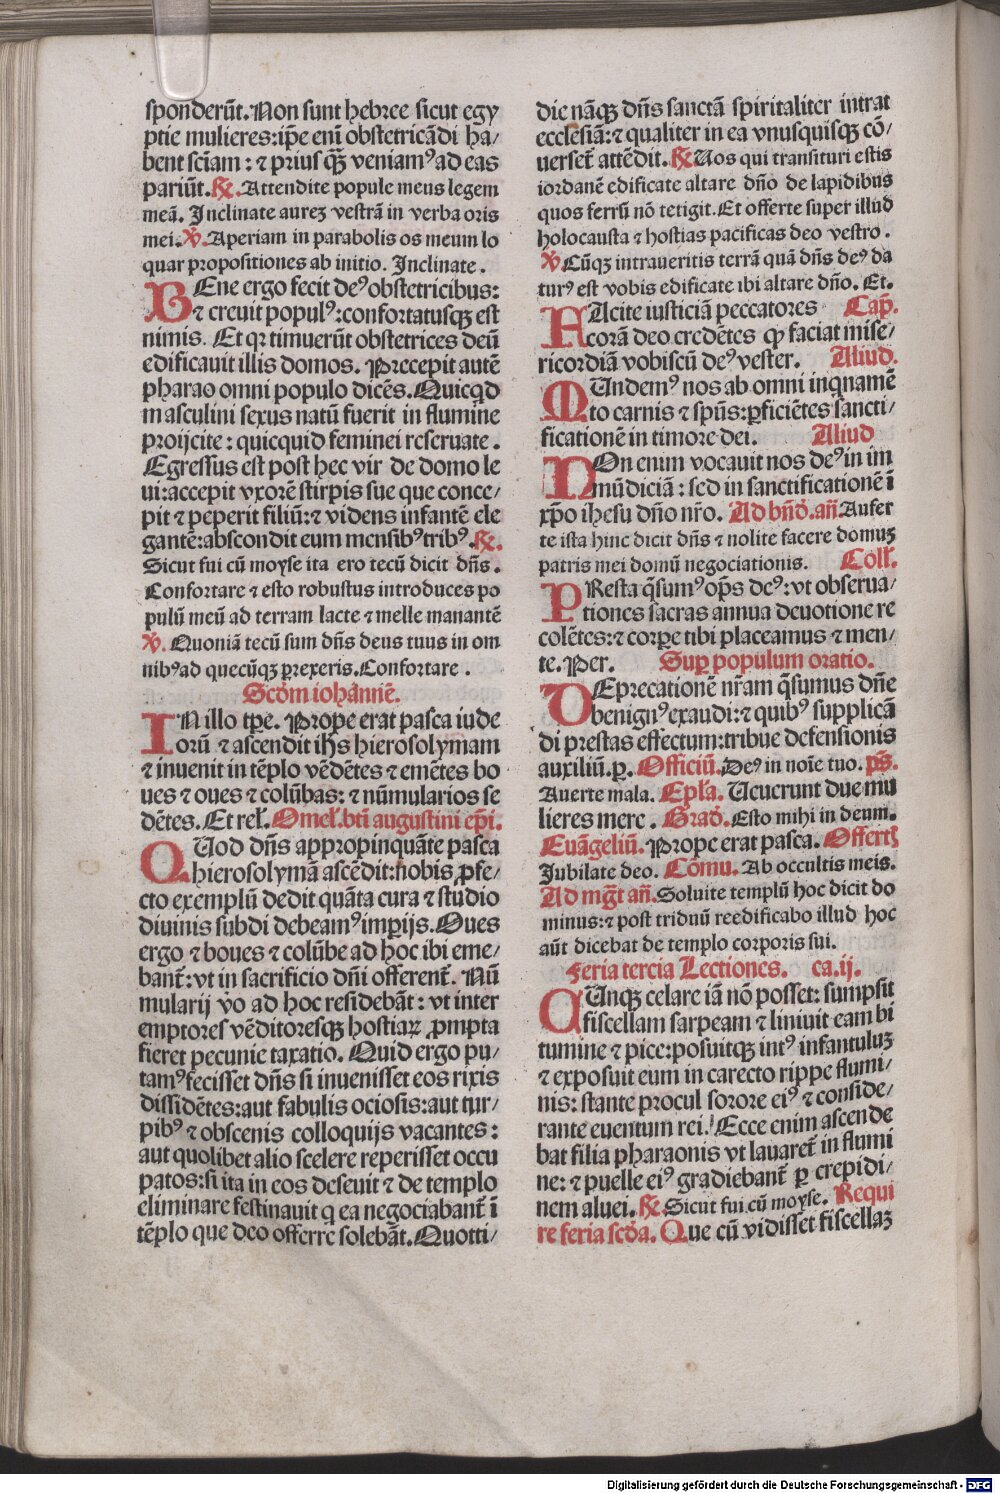 sponderūt. Non sunt hebree sicut egy
ptie mulieres: ip̄e eni͂ obstetricādi ha/
bent sc̄iam: ⁊ prius q̄ꝫ veniamꝰ ad eas
pariūt. ℟. Attendite popule meus legem
meā. Inclinate aureꝫ vestrā in verba oris
mei. ℣. Aperiam in parabolis os meum lo
quar propositiones ab initio. Inclinate.
BEne ergo fecit deꝰ obstetricibus:
⁊ creuit populꝰ: confortatusqꝫ est
nimis. Et qꝛ timuerūt obstetrices deū
edificauit illis domos. Precepit autē
pharao omni populo dicēs. Quicqd
masculini sexus natū fuerit in flumine
proijcite: quicquid feminei reseruate.
Egressus est post hec vir de domo le
ui: accepit vxorē stirpis sue que conce/
pit ⁊ peperit filiū: ⁊ videns infantē ele
gantē: abscondit eum mensibꝰ tribꝰ. ℟.
Sicut fui cū moyse ita ero tecū dicit dn̄s.
Confortare ⁊ esto robustus introduces po
pulū meū ad terram lacte ⁊ melle manantē
℣. Quoniā tecū sum dn̄s deus tuus in om
nibꝰ ad quecūqꝫ ꝑrexeris. Confortare.
Scd̄m iohānnē.
IN illo tp̄e. Prope erat pasca iude
orū ⁊ ascendit ihs̄ hierosolymam
⁊ inuenit in tēplo vēdētes ⁊ emētes bo
ues ⁊ oues ⁊ colūbas: ⁊ nūmularios se
dētes. Et rel̄. Omel̄. bt̄i augustini ep̄i.
QUod dn̄s appropinquāte pasca
hierosolymā ascēdit: nobis ꝓfe/
cto exemplū dedit quāta cura ⁊ studio
diuinis subdi debeamꝰ imperijs. Oues
ergo ⁊ boues ⁊ colūbe ad hoc ibi eme/
bant̄: vt in sacrificio dn̄i offerent̄. Nū
mularij v̄o ad hoc residebāt: vt inter
emptores vēditoresqꝫ hostiaꝝ ꝓmpta
fieret pecunie taxatio. Quid ergo pu/
tamꝰ fecisset dn̄s si inuenisset eos rixis
dissidētes: aut fabulis ociosis: aut tur/
pibꝰ ⁊ obscenis colloquijs vacantes:
aut quolibet alio scelere reperisset occu
patos: si ita in eos deseuit ⁊ de templo
eliminare festinauit q ea negociabant̄ ī
tēplo que deo offerre solebāt. Quotti/
die nāqꝫ dn̄s sanctā spiritaliter intrat
ecclesiā: ⁊ qualiter in ea vnusquisqꝫ cō/
uerset̄ attēdit. ℟. Uos qui transituri estis
iordanē edificate altare dn̄o de lapidibus
quos ferrū nō tetigit. Et offerte super illud
holocausta ⁊ hostias pacificas deo vestro.
℣. Cūqꝫ intraueritis terrā quā dn̄s deꝰ da
turꝰ est vobis edificate ibi altare dn̄o. Et.
FAcite iusticiā peccatores Cap̄.
corā deo credētes ꝙ faciat mise/
ricordiā vobiscū deꝰ vester. Aliud.
MUndemꝰ nos ab omni inqnamē
to carnis ⁊ spūs: ꝑficiētes sancti/
ficationē in timore dei. Aliud
NOn enim vocauit nos deꝰ in im
mūdiciā: sed in sanctificationē ī
xp̄o ihesu dn̄o nr̄o. Ad bn̄d̄. an̄. Aufer
te ista hinc dicit dn̄s ⁊ nolite facere domuꝫ
patris mei domū negociationis. Coll̄.
PResta q̄sumꝰ op̄s deꝰ: vt obserua/
tiones sacras annua deuotione re
colētes: ⁊ corꝑe tibi placeamus ⁊ men/
te. Per. Suꝑ populum oratio.
DEprecationē nr̄am q̄sumus dn̄e
benignꝰ exaudi: ⁊ quibꝰ supplicā
di prestas effectum: tribue defensionis
auxiliū. ꝑ. Officiū. Deꝰ in noīe tuo. ps̄.
Auerte mala. Epl̄a. Ucuerunt due mu
lieres mere. Grad̄. Esto mihi in deum.
Euāgeliū. Prope erat pasca. Offert̄
Jubilate deo. Cōmu. Ab occultis meis.
Ad mg̅t an̄. Soluite templū hoc dicit do
minus: ⁊ post triduū reedificabo illud hoc
aūt dicebat de templo corporis sui.
Feria tercia Lectiones. ca. ij.
CUnqꝫ celare iā nō posset: sumpsit
fiscellam sarpeam ⁊ liniuit eam bi
tumine ⁊ pice: posuitqꝫ intꝰ infantuluꝫ
⁊ exposuit eum in carecto rippe flumi/
nis: stante procul sorore eiꝰ ⁊ conside/
rante euentum rei. Ecce enim ascende
bat filia pharaonis vt lauaret̄ in flumi
ne: ⁊ puelle eiꝰ gradiebant̄ ꝑ crepidi/
nem aluei. ℟. Sicut fui cū moyse. Requi
re feria scd̄a. Que cū vidisset fiscellaꝫ
Digitalisierung gefördert durch die Deutsche Forschungsgemeinschaft - DFG